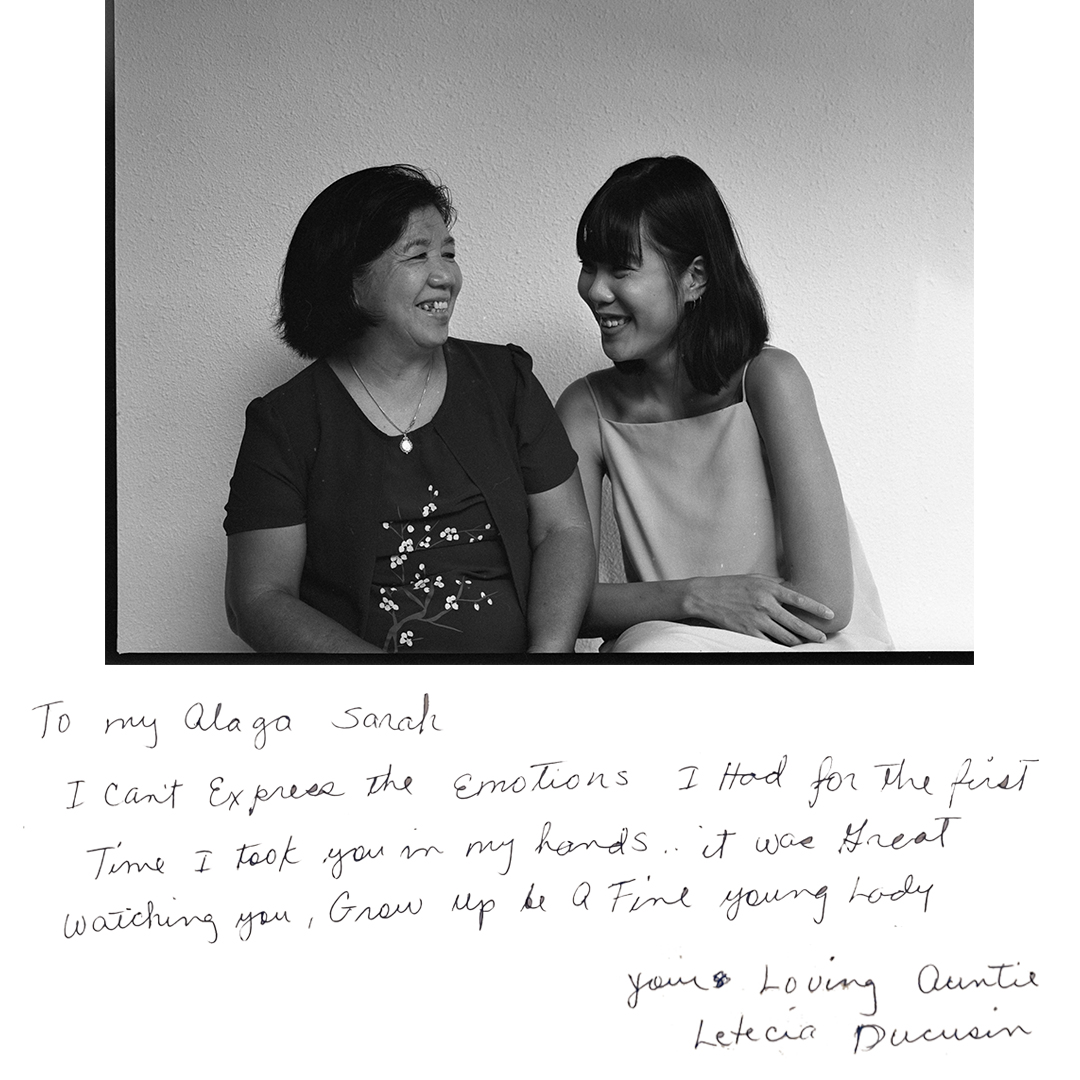 To my Alaga Sarah
I Can't Express the Emotions I Had for the first
Time I took you in my hands.. it was Great
watching you, Grow up be A Fine young Lady
yours Loving Auntie
Letecia Ducusin